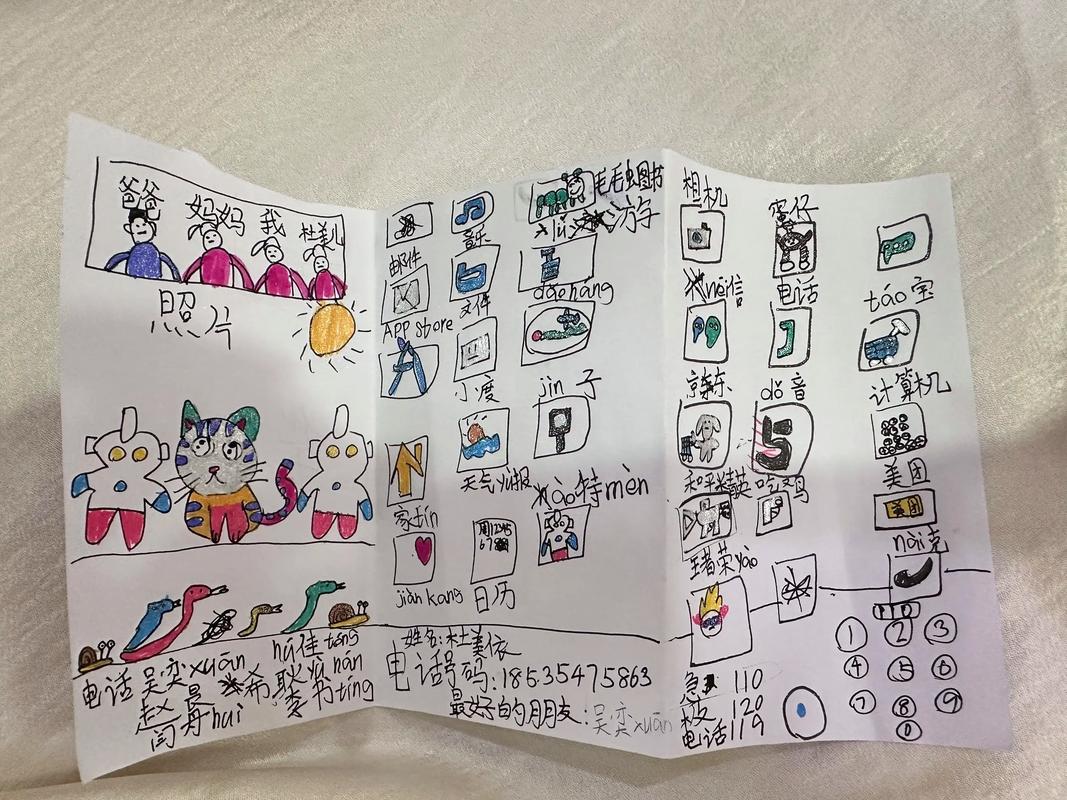 爸爸
妈妈
我
杜美儿
照片
电话 吴奕xuān
赵晨
闫丹hui
希
耿
李书tíng
邮件
音乐
毛毛虫图书
游
APP store
文件
dǎoháng
A
小渡
jìn子
天气yù报
特mèn
家tín
周12345
67
jiàn kang
日历
姓名:杜美依
电话号码:18535475863
最好的朋友:吴奕xuān
相机
蛋仔
电话
táo宝
京东
dǒ音
计算机
和平精英
吃鸡
美团
美团
王者荣yào
nài克
急 110
120
电话119
1 2 3
4 5 6
7 8 9
0